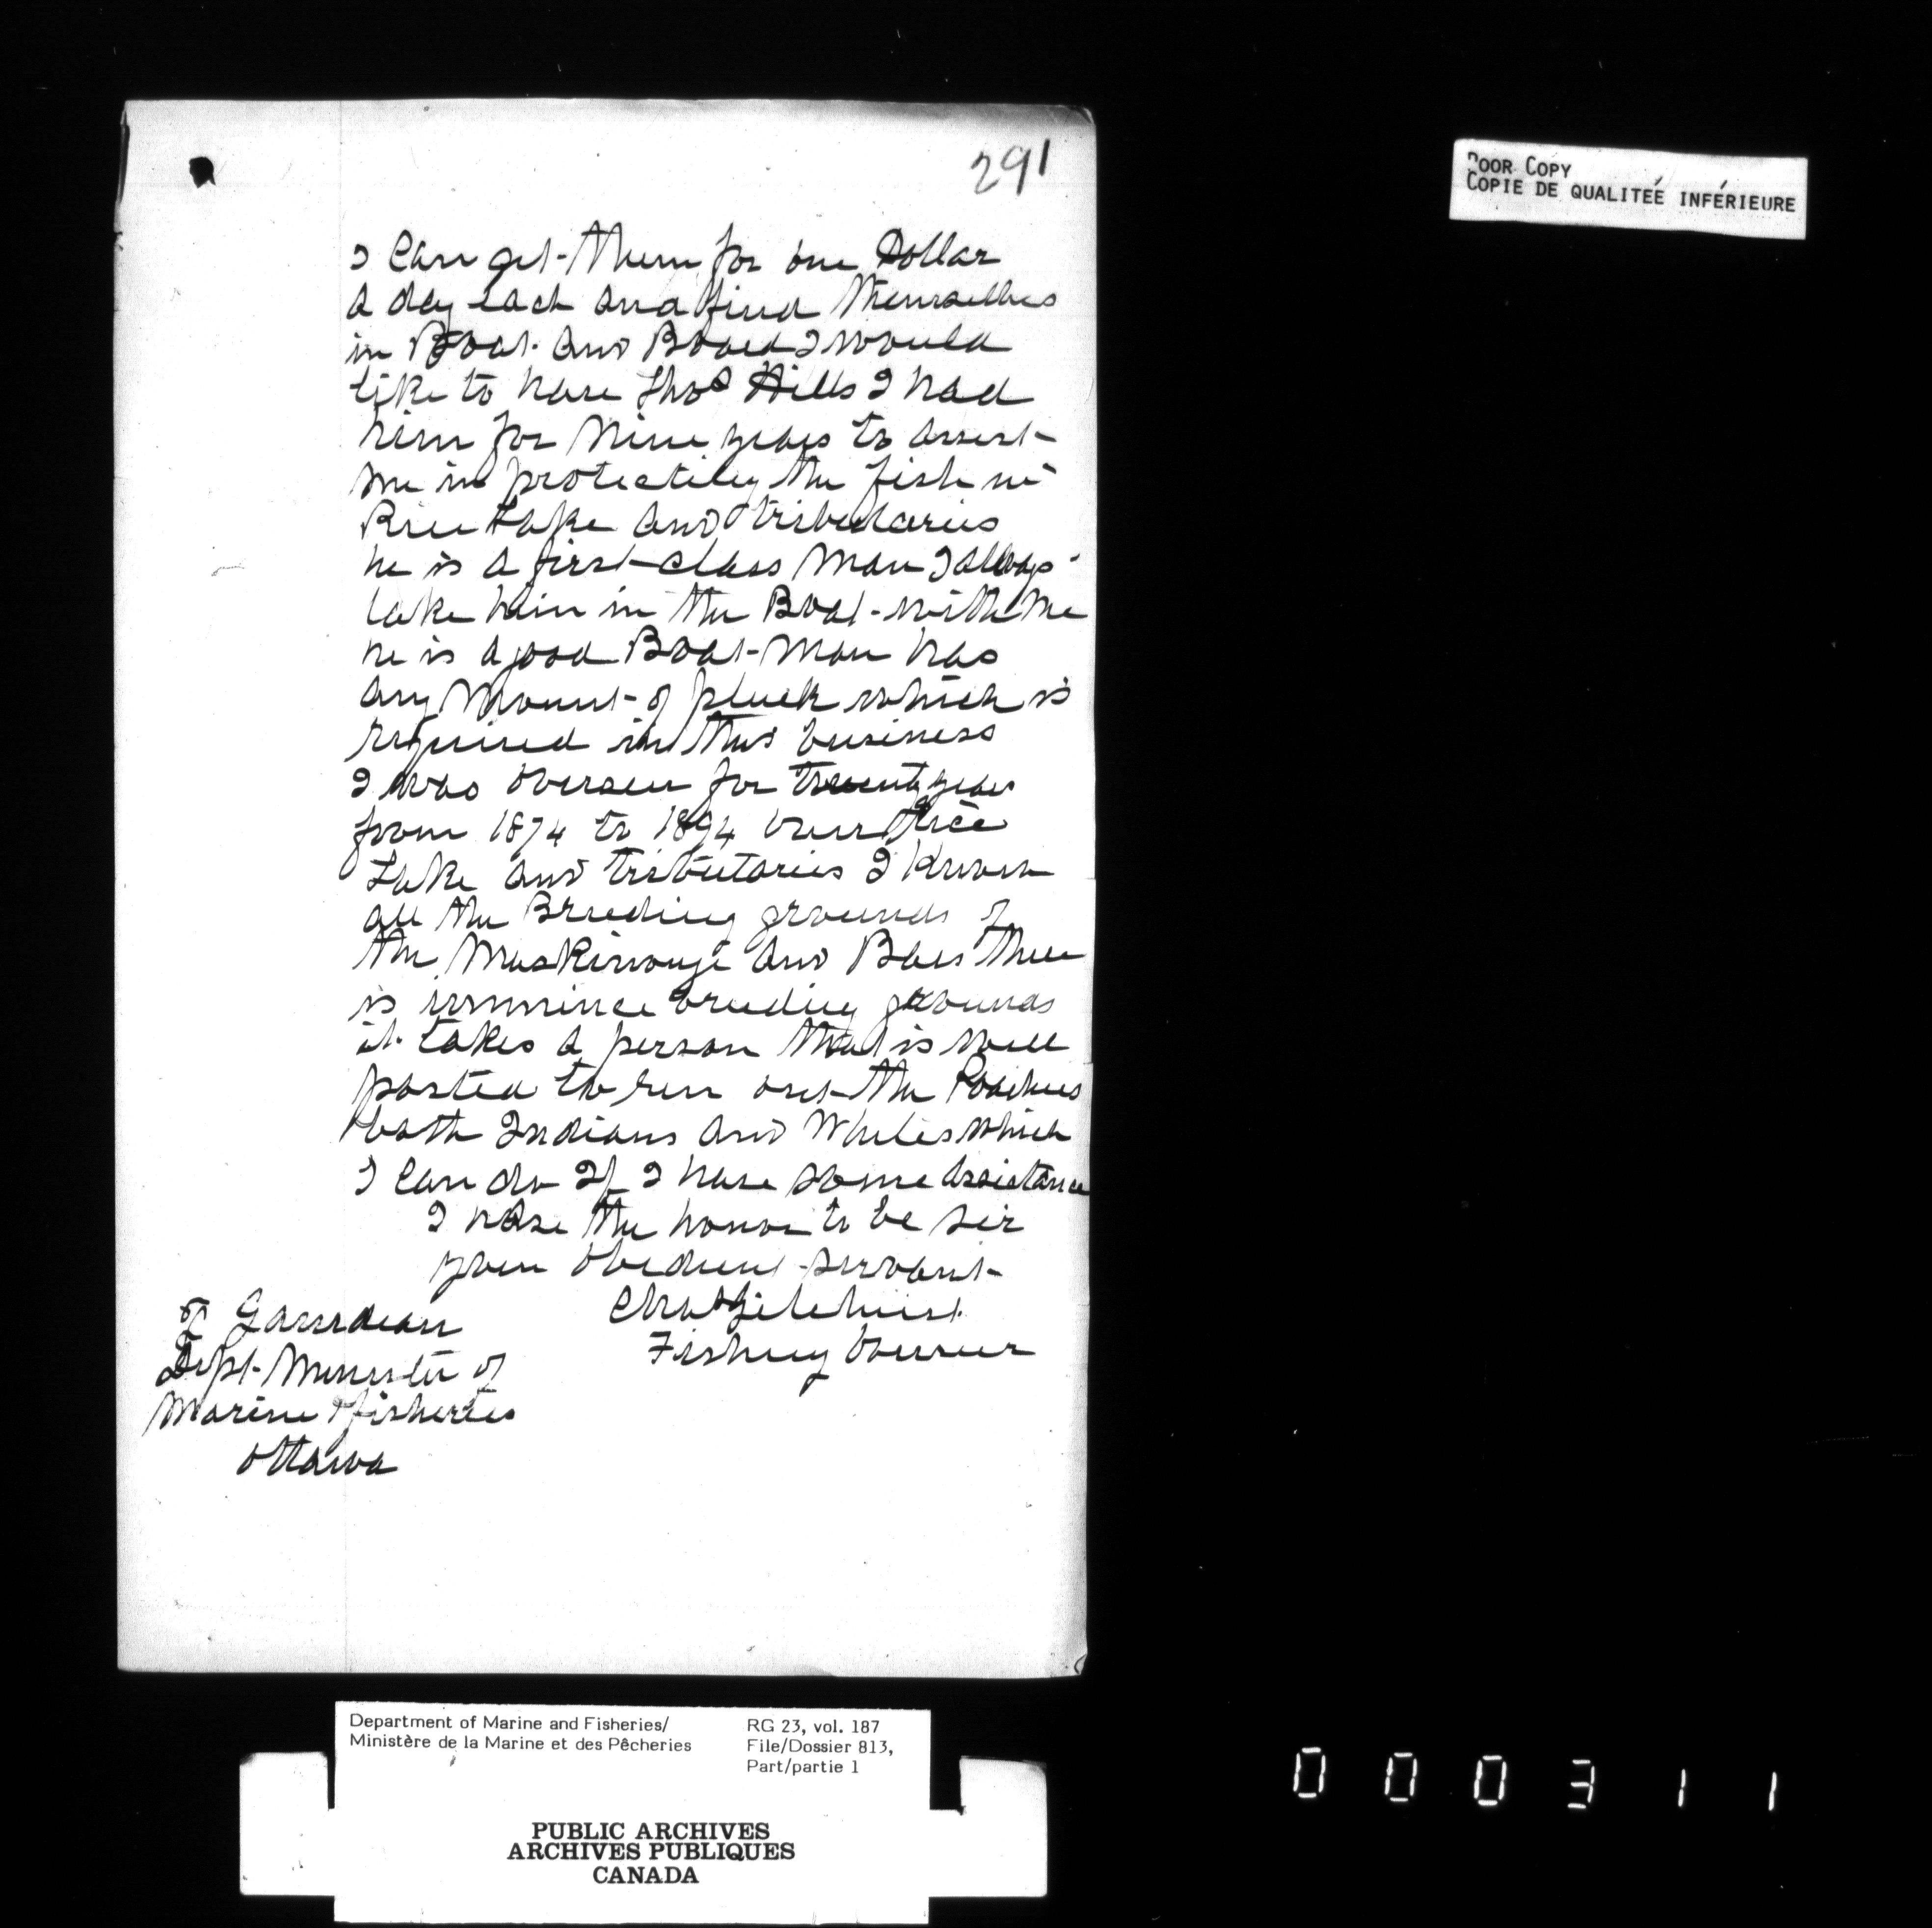 291
POOR COPY
COPIE DE QUALITEÉ INFÉRIEURE
I Can get them for one Dollar
a day each and find themselves
in Boat and Board I would
like to have Thos Hills I had
him for Nine years to assist
me in protecting the fish in
Rice Lake and tributaries
he is a first class Man I allways
take him in the Boat with me
he is a good Boat Man has
any Mount of pluck which is
required in this business
I was overseer for twenty years
from 1874 to 1894 over Rice
Lake and tributaries I Know
all the Breeding grounds of
the Maskinonge and Bass there
is immince breeding grounds
it takes a person that is well
posted to run out the Poachers
both Indians and Whites which
I Can do If I have some Assistance
I have the honor to be sir
your obedient servant
Chas Gilchrist
Fishery Overseer
F Gourdeau
Dept Minister of
Marine & fisheries
Ottawa
Department of Marine and Fisheries/
Ministère de la Marine et des Pêcheries
RG 23, vol. 187
File/Dossier 813,
Part/partie 1
PUBLIC ARCHIVES
ARCHIVES PUBLIQUES
CANADA
000311